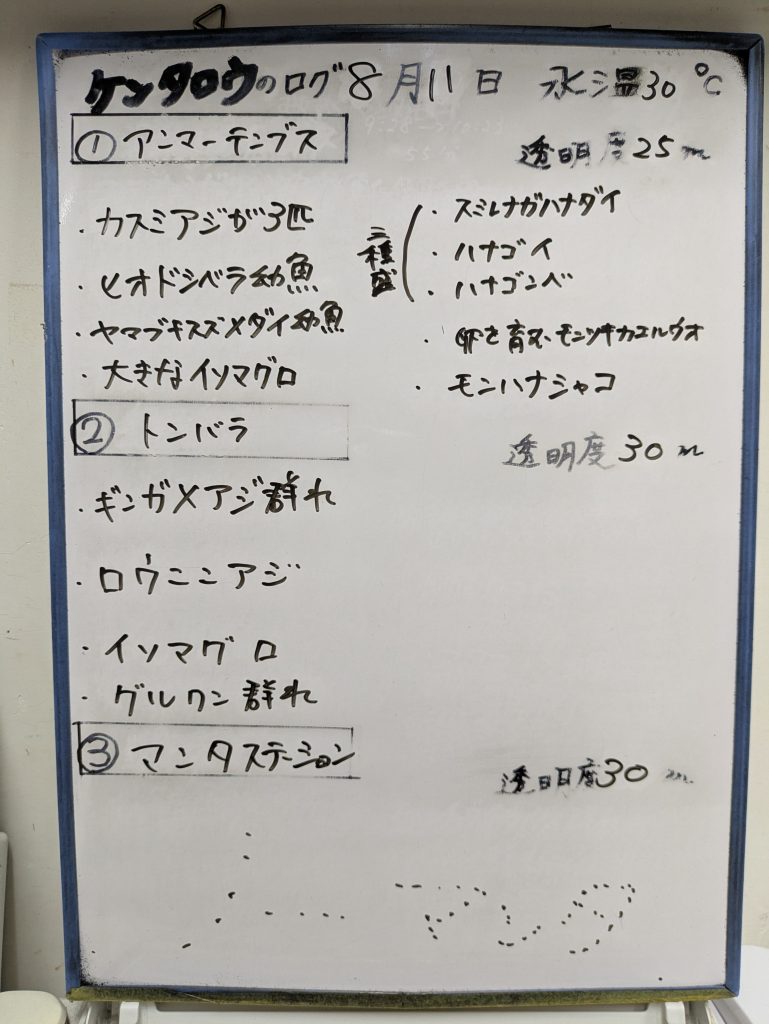 ケンタロウのログ 8月11日 水温30℃
① アンマーテンブス
透明度25m
・カスミアジが3匹
・ヒオドシベラ幼魚
・ヤマブキスズメダイ幼魚
・大きなイソマグロ
三種盛
・スミレナガハナダイ
・ハナゴイ
・ハナゴンベ
・卵を育児、モンツキカエルウオ
・モンハナシャコ
② トンバラ
透明度30m
・ギンガメアジ群れ
・ロウニンアジ
・イソマグロ
・グルクン群れ
③ マンタステーション
透明度30m
ノーマンタ